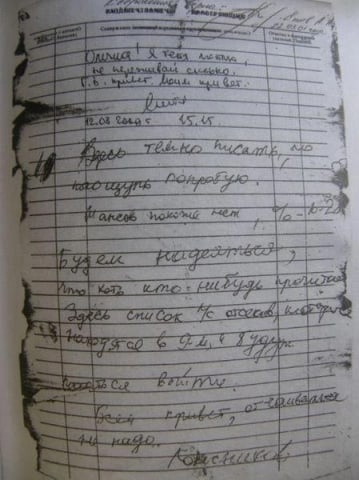 Олечка! Я тебя люблю,
не переживай сильно.
Г.В. привет. Моим привет.
12.08.2000 г 15.15
Здесь темно писать, но
наощупь попробую.
Шансов похоже нет, %-10-20
Будем надеяться,
что хоть кто-нибудь прочитает
Здесь список л/с отсеков, которые
находятся в 9-м и будут
пытаться выйти.
Всем привет, отчаиваться
не надо.
Колесников